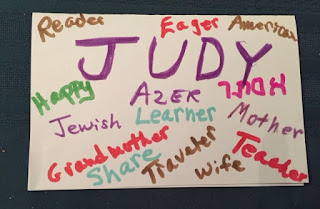 Reader Eager American
JUDY
Happy AZER
Jewish Learner Mother
Grandmother Share Traveler Wife Teacher